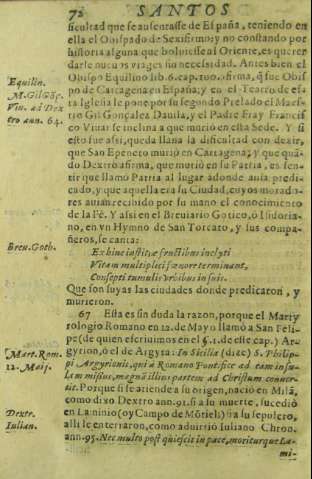 72 SANTOS
ficultad que se ausentasse de España, teniendo en
ella el Obispado de Sexifirmo y no constando por
historia alguna que boluiesse al Oriente, es querer
darle nueuos viages sin necessidad. Antes bien el
Obispo Equilino lib. 6. cap. 100. afirma, q̃ fue Obis-
po de Cartagena en España; y en el Teatro de esta
Iglesia le pone por segundo Prelado el Maes-
tro Gil Gonçalez Dauila, y el Padre Fray Francis-
co Viuar se inclina a que murio en esta Sede. Y si
esto fue assi, queda llana la dificultad con dezir,
que San Epeneto murio en Cartagena; y que quã-
do Dextro afirma, que murio en su Patria, es sen-
tir que llamó Patria al lugar adonde auia predi-
cado, y que aquella era su Ciudad, cuyos morado-
res auian recibido por su mano el conocimiento
de la Fé. Y assi en el Breuiario Gotico, o Isidoria-
no, en vn Hymno de San Torcato, y sus compa-
ñeros, se canta:
Ex hinc iustitiæ fructibus inclyti
Vitam multiplici fœnore terminant,
Consepti tumulis Vrbibus in suis.
Que son suyas las ciudades donde predicaron, y
murieron.
67 Esta es sin duda la razon, porque el Marty
rologio Romano en 12. de Mayo llamó a San Feli-
pe (de quien escriuimos en el §. 1. de este cap.) Ar-
gyrion, ó el de Argyra: In Sicilia (dize) S. Philip-
pi Argyrionis, qui à Romano Pontifice ad eam insu-
lam missus, magnã illius partem ad Christum conuer-
tit. Porque si se atiende a su origen, nació en
como dixo Dextro ann. 91. si a su muerte, sucedió
en Laminio (oy Campo de Mõtiel) y a su sepulcro,
alli le enterraron, como aduirtió Iuliano Chron.
ann. 95. Nec multo post quiescit in pace, moriturque La-
mi-
Equilin.
M. Gil Gõç.
Viu. ad Dex
tro ann. 64.
Breu. Goth.
Mart. Rom.
12. Maij.
Dextr.
Iulian.